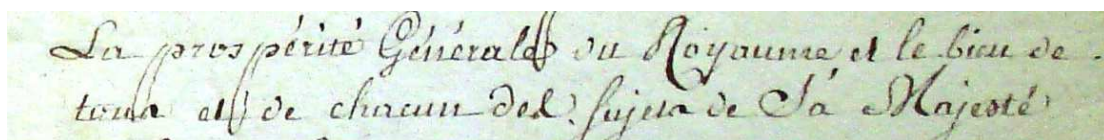 La prospérité Générale du Royaume et le bien de
tous et de chacun des sujets de Sa Majesté